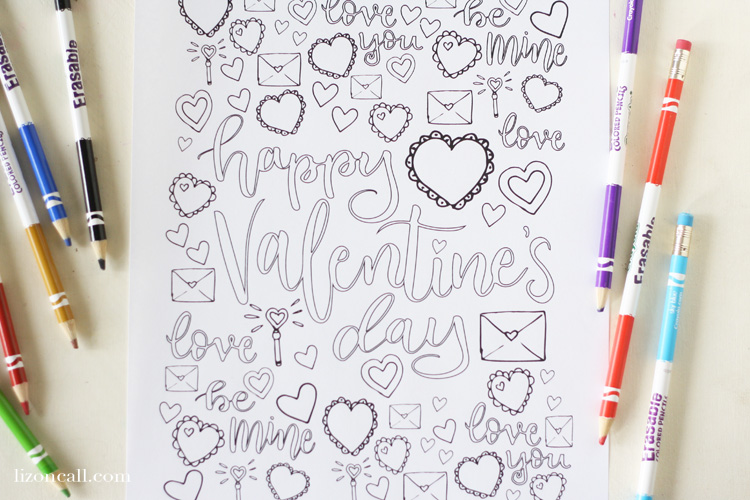 love
you
be
mine
love
happy
Valentine's
day
love
be
mine
love
you
Erasable
Erasable
COLORED PENCILS
Erasable
Erasable
COLORED PENCILS
lizoncall.com